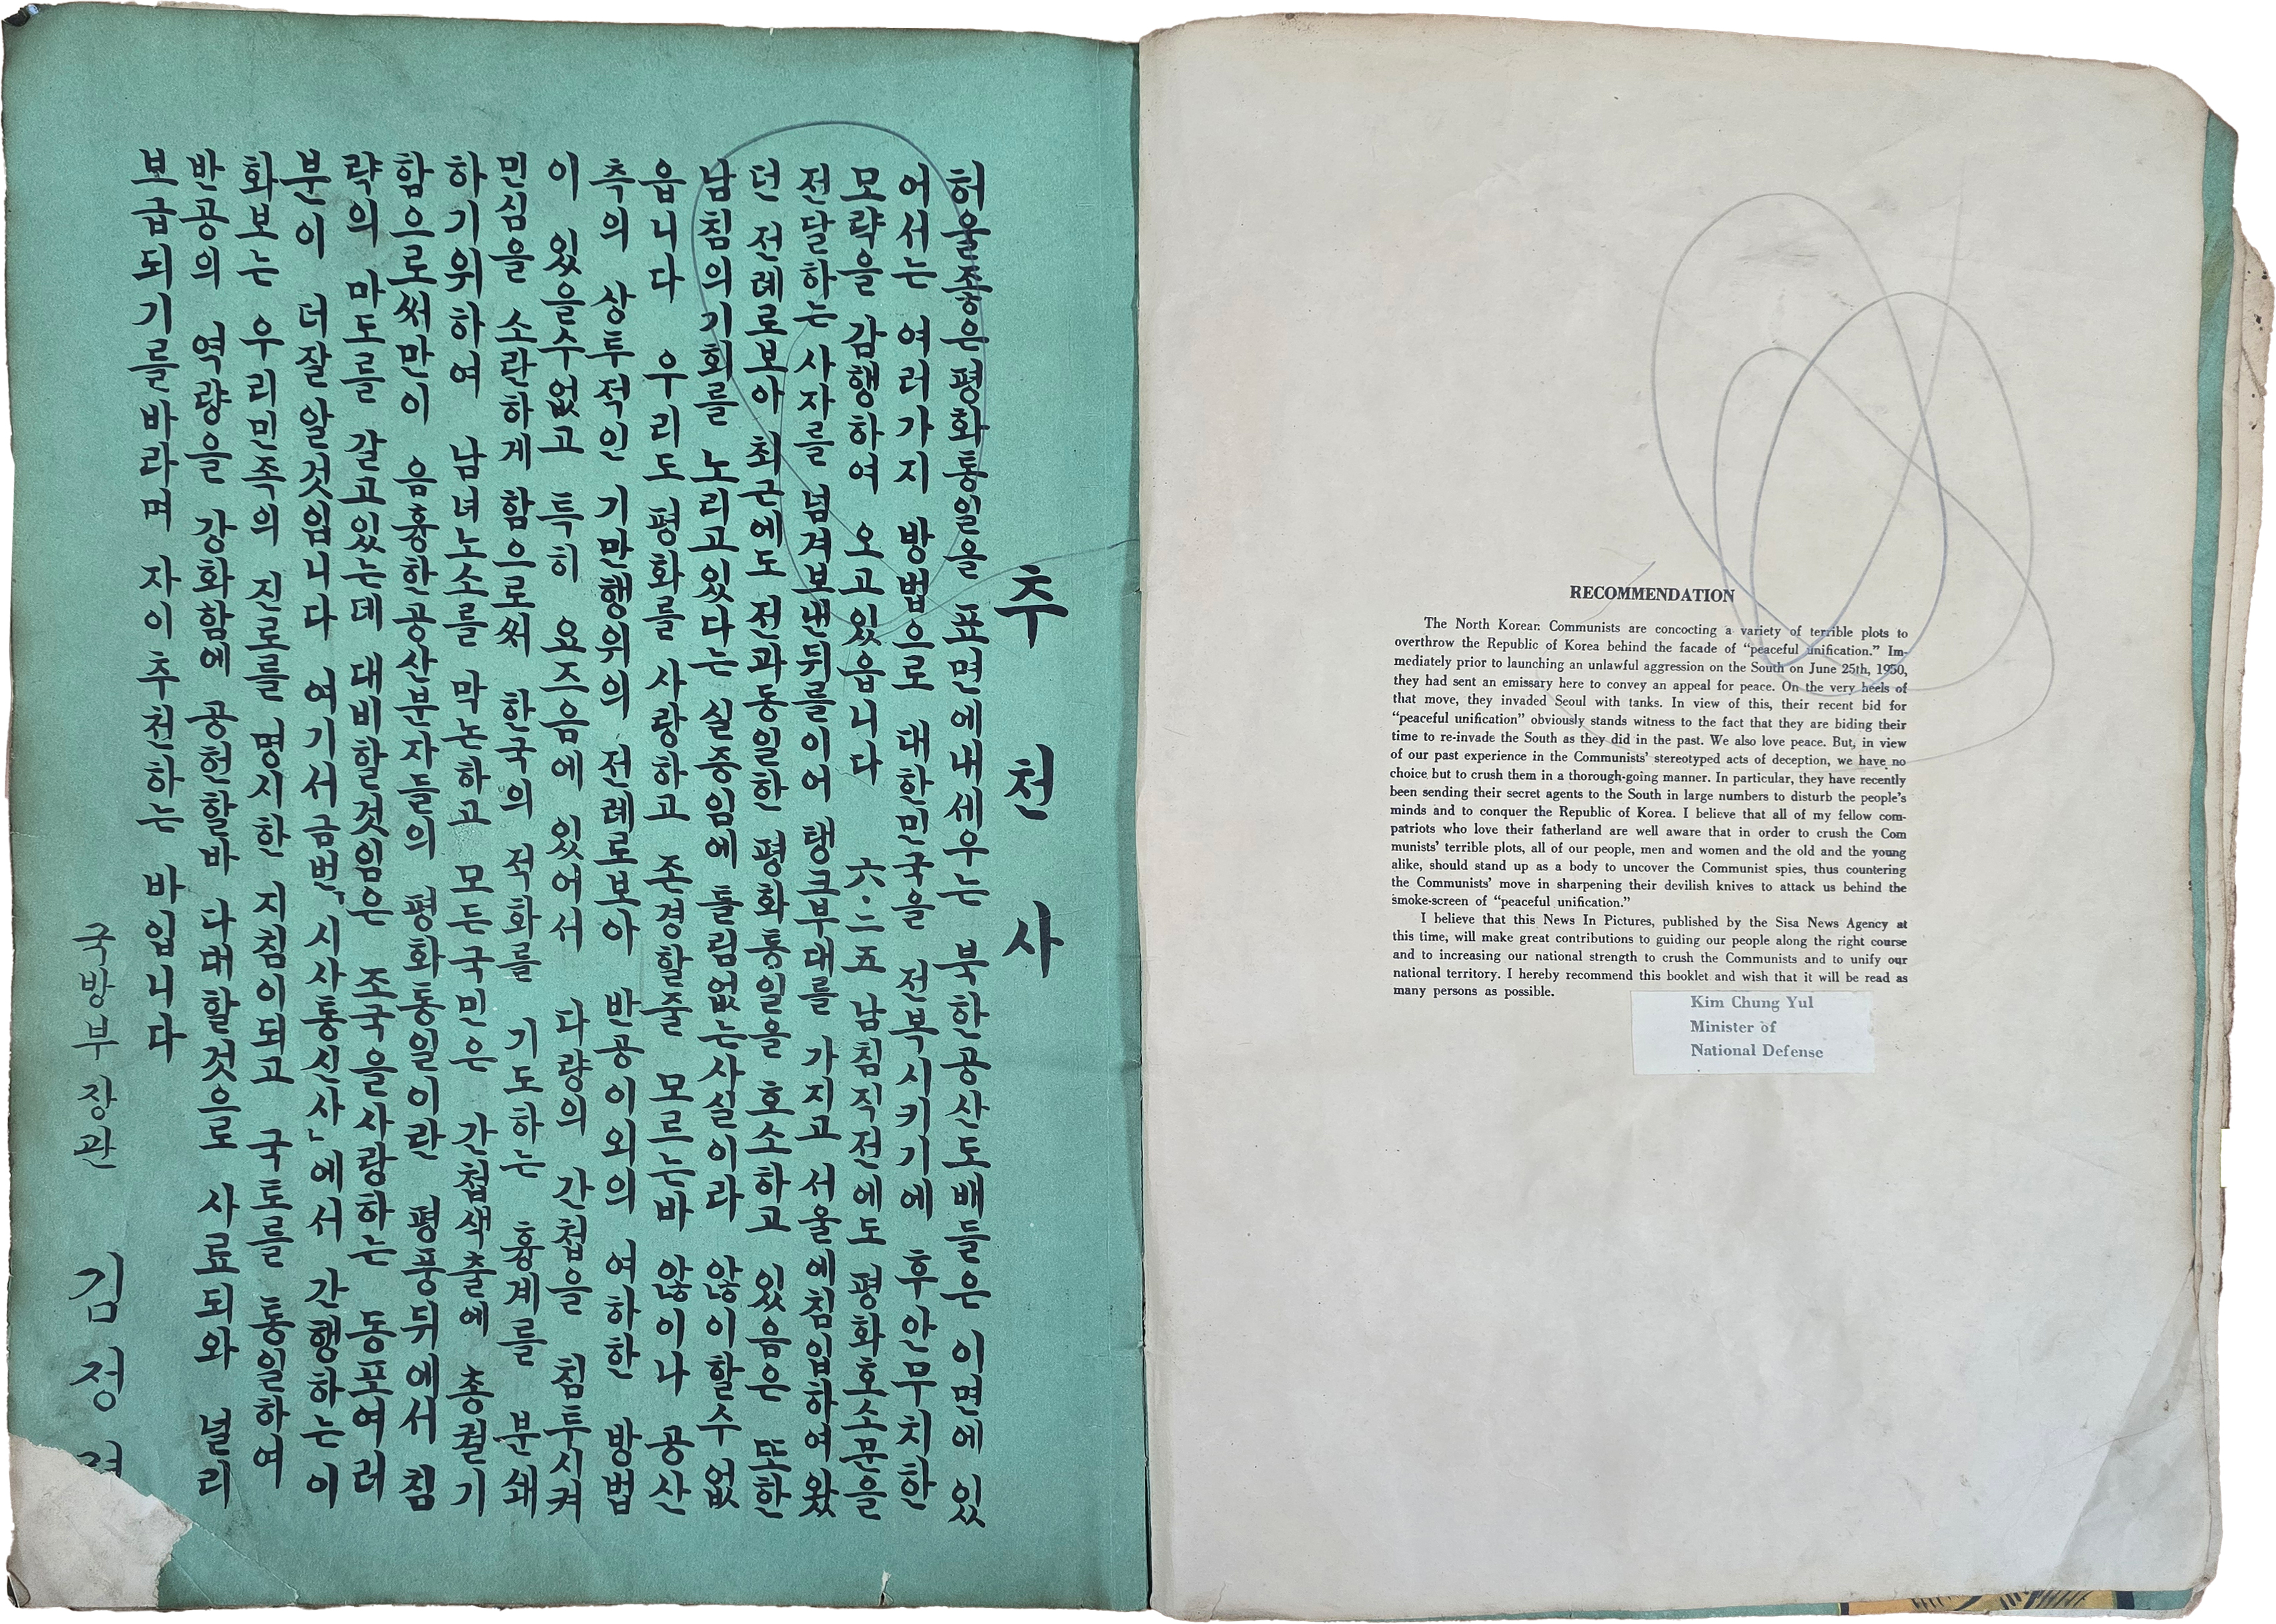 추천사
허울좋은평화통일을 표면에내세우는 북한공산도배들은 이면에 있
어서는 여러가지 방법으로 대한민국을 전복시키기에 후안무치한
모략을 감행하여 오고있읍니다 六·二五 남침직전에도 평화호소문을
전달하는 사자를 넘겨보낸뒤를이어 탱고부대를 가지고 서울에침입하여 왔
던 전례로보아 최근에도 전과동일한 평화통일을 호소하고 있음은 또한
남침의기회를 노리고있다는 실증임에 틀림없는사실이라 않이할수 없
읍니다 우리도 평화를 사랑하고 존경할줄 모르는바 않이나 공산
측의 상투적인 기만행위의 전례로보아 반공이외의 여하한 방법
이 있을수없고 특히 요즈음에 있어서 다량의 간첩을 침투시켜
민심을 소란하게 함으로써 한국의 적화를 기도하는 흉계를 분쇄
하기위하여 남녀노소를 막논하고 모든국민은 간첩색출에 총궐기
함으로써만이 음흉한공산분자들의 평화통일이란 평풍뒤에서 침
략의 마도를 갈고있는데 대비할것임은 조국을사랑하는 동포여러
분이 더잘알것입니다 여기서금번「시사통신사」에서 간행하는이
화보는 우리민족의 진로를 명시한 지침이되고 국토를 통일하여
반공의 역량을 강화함에 공헌할바 다대할것으로 사료되와 널리
보급되기를바라며 자이추천하는 바입니다
국방부장관 김정
RECOMMENDATION
The North Korean Communists are concocting a variety of terrible plots to
overthrow the Republic of Korea behind the facade of “peaceful unification.” Im-
mediately prior to launching an unlawful aggression on the South on June 25th, 1950,
they had sent an emissary here to convey an appeal for peace. On the very heels of
that move, they invaded Seoul with tanks. In view of this, their recent bid for
“peaceful unification” obviously stands witness to the fact that they are biding their
time to re-invade the South as they did in the past. We also love peace. But, in view
of our past experience in the Communists’ stereotyped acts of deception, we have no
choice but to crush them in a thorough-going manner. In particular, they have recently
been sending their secret agents to the South in large numbers to disturb the people’s
minds and to conquer the Republic of Korea. I believe that all of my fellow com-
patriots who love their fatherland are well aware that in order to crush the Com
munists’ terrible plots, all of our people, men and women and the old and the young
alike, should stand up as a body to uncover the Communist spies, thus countering
the Communists’ move in sharpening their devilish knives to attack us behind the
smoke-screen of “peaceful unification.”
I believe that this News In Pictures, published by the Sisa News Agency at
this time, will make great contributions to guiding our people along the right course
and to increasing our national strength to crush the Communists and to unify our
national territory. I hereby recommend this booklet and wish that it will be read as
many persons as possible.
Kim Chung Yul
Minister of
National Defense